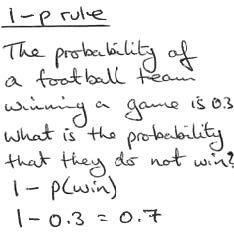 1-p rule
The probability of
a football team
winning a game is 0.3
what is the probability
that they do not win?
1 - p(win)
1 - 0.3 = 0.7